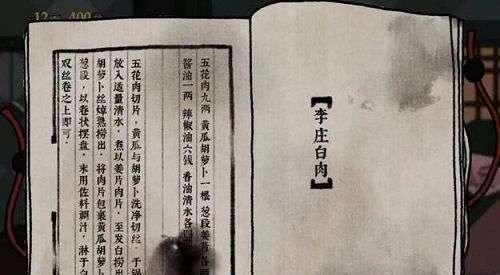 李庄白肉
五花肉九两 黄瓜胡萝卜一根 葱段姜
酱油一两 辣椒油六钱 香油清水各
五花肉切片，黄瓜与胡萝卜洗净切丝。于锅
放入适量清水，煮以姜片肉片，至发白捞出
胡萝卜丝焯熟捞出，将肉片包裹黄瓜胡萝卜
葱段，以卷状摆盘，末用佐料调汁，淋于白
双丝卷之上即可。